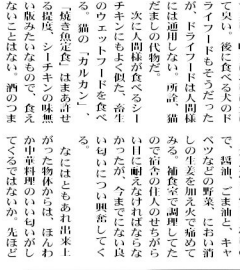 て臭い。後に食べる犬のド
ライフードもそうだった
が、ドライフードは人間様
には通用しない。所詮、猫
だましの代物だ。
次に人間様が食べるシー
チキンにもよく似た、畜生
のウェットフードを食べ
る。猫の「カルカン」、
「焼き魚定食」はまあ許せ
る程度、シーチキンの味無
い版みたいなもので、食え
ないことはない。酒のつま
で、醤油、ごま油と、キャ
ベツなどの野菜、におい消
しの生姜を加え火で痛めて
みる。補食室で調理してた
ので宿舎の住人のせちがら
い目に耐えなければならな
かったが、今までにない良
い匂いについ興奮してく
る。
なにはともあれ出来上
がった物体からは、ほんわ
か中華料理のいい匂いがし
てくるではないか。先ほど